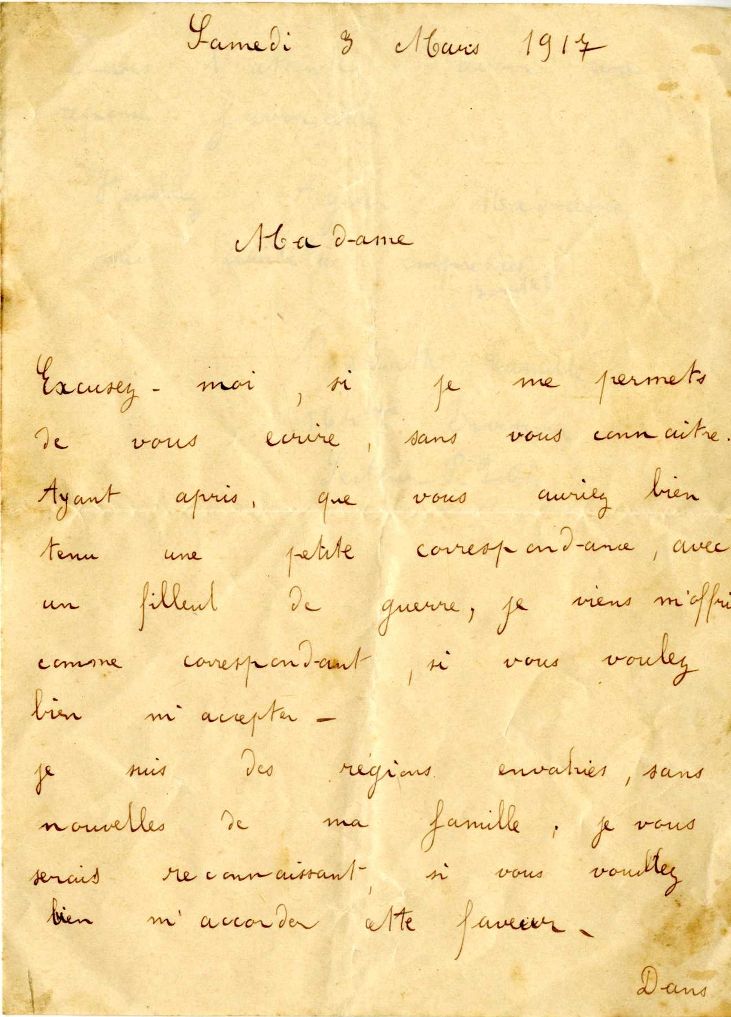 Samedi 3 Mars 1917
Madame
Excusez-moi, si je me permets
de vous ecrire, sans vous connaitre.
Ayant apris, que vous auriez bien
tenu une petite correspondance, avec
un filleul de guerre, je viens m'offri
comme correspondant, si vous voulez
bien m'accepter -
je suis des régions envahies, sans
nouvelles de ma famille, je vous
serais reconnaissant, si vous voullez
bien m'accorder cette faveur -
Dans